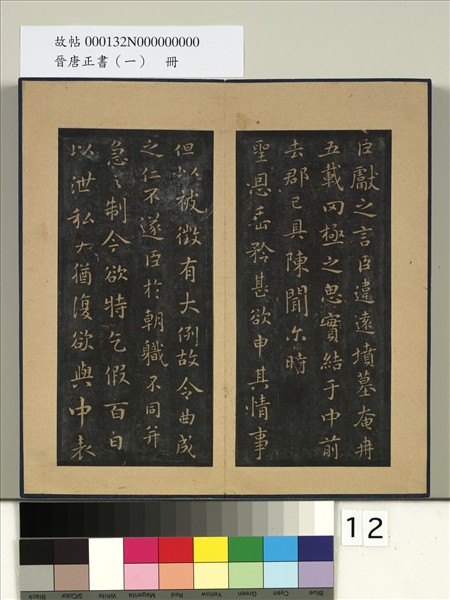 故帖 000132N000000000
晉唐正書（一） 冊
臣獻之言臣違遠墳墓奄冉
五載罔極之思實結于中前
去郡已具陳聞尒時
聖恩垂矜甚欲申其情事
但以被徵有大例故令曲成
之仁不遂臣於朝軄不同并
急之制今欲特乞假百日
以泄私大猶復欲與中表
12
Blue
Cyan
Green
Yellow
Red
Magenta
White
3/Color
Black